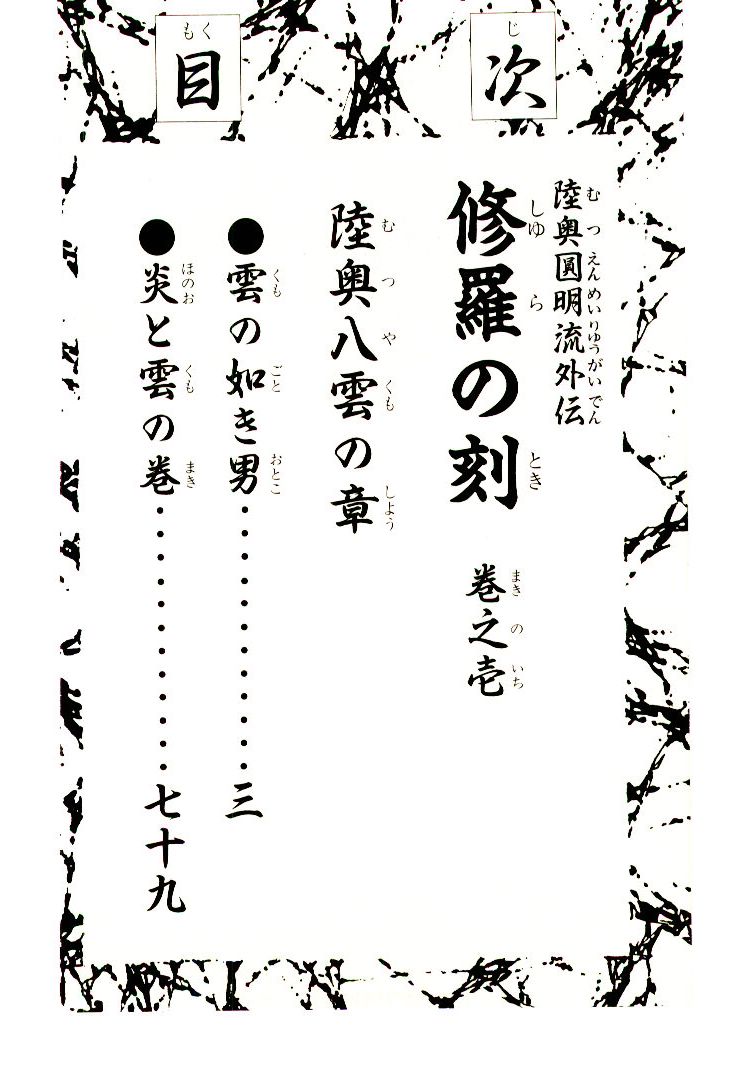 目次
陸奥圓明流外伝
修羅の刻
巻之壱
陸奥八雲の章
●雲の如き男・・・・・・・・・・・・三
●炎と雲の巻・・・・・・・・・・・・七十九